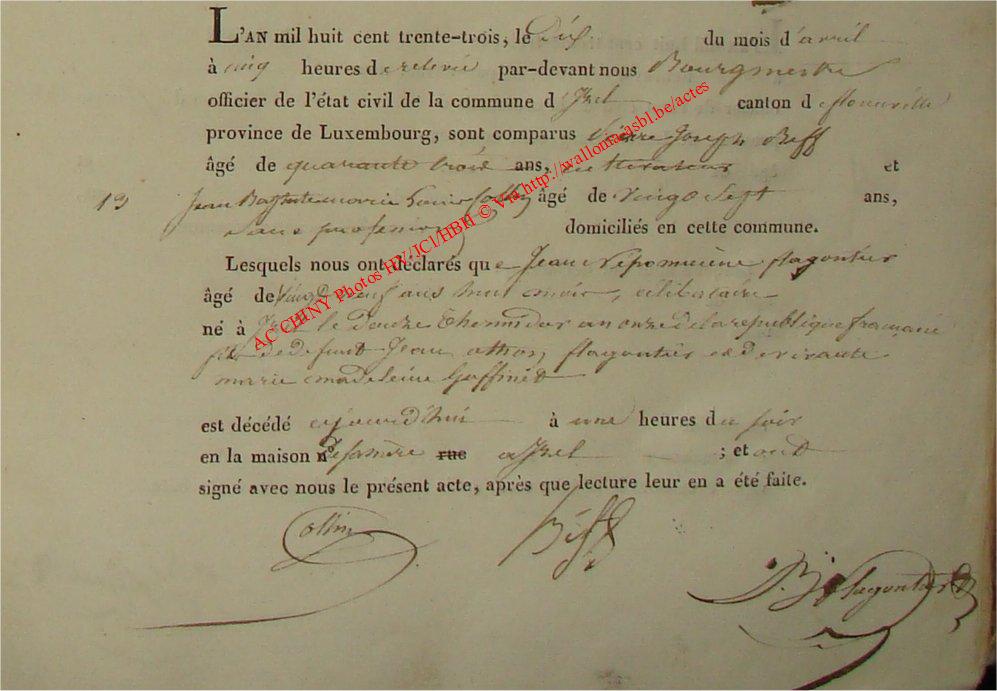 L'AN mil huit cent trente-trois, le Dix du mois d'avril
à cinq heures de relevée par-devant nous Bourgmestre
officier de l'état civil de la commune d'Izel canton de florenville
province de Luxembourg, sont comparus Pierre Joseph Biff
âgé de quarante trois ans, cultivateur et
13 Jean Baptiste marie Louis Collin âgé de vingt sept ans,
sans profession domiciliés en cette commune.
Lesquels nous ont déclarés que Jean Népomucène flagontier
âgé de vingt neuf ans huit mois, célibataire
né à Izel le Douze Thermidor an onze de la republique francaise
fils de defunt Jean flagontier et de vivante
marie madeleine Goffinet
est décédé aujourd'hui à une heures du soir
en la maison n° de sa mère rue a Izel ; et ont
signé avec nous le présent acte, après que lecture leur en a été faite.
Collin Biff
flagontier
AC CHINY Photos HV/JCl/HBH © Via http://wallomaniasbl.be/actes